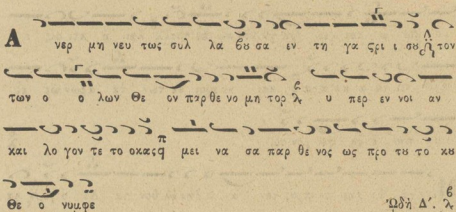 Α νερ μη νευ τως συλ λα βου σα εν τη γα στρι ι σου τον
των ο ο λων Θε ον παρ θε νο μη τορ υ περ εν νοι αν
και λο γον τε το οκας μει να σα παρ θε νος ως προ του το κου
Θε ο νυμφε Ὠδὴ Δʹ.